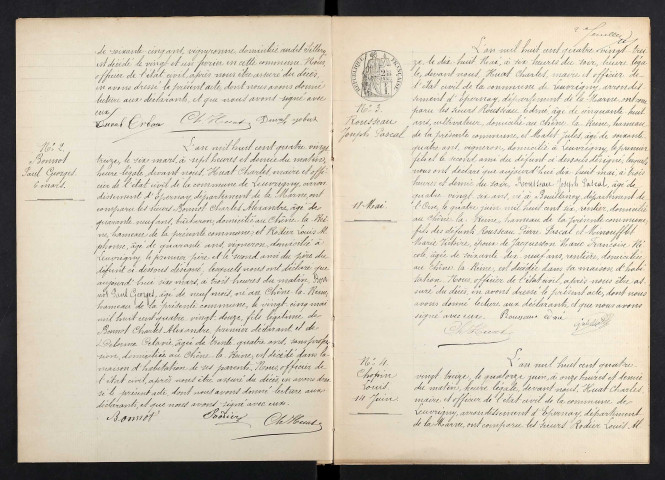 de soixante cinq ans, vigneronne, domiciliée audit Tillery
est décédé le vingt et un février en cette commune. Nous
officier de l'état civil, après nous être assuré du décès,
en avons dressé le présent acte, dont nous avons donné
lecture aux déclarants, et que nous avons signé avec
eux.
Ch Huat
N° 2.
Bonnot
Paul Georges
6 mars.
L'an mil huit cent quatre vingt
treize, le six mars à sept heures et demie du matin,
heure légale, devant nous Huat Charles maire et offi-
cier de l'état civil de la commune de Leuvrigny, arron-
dissement d'Epernay département de la Marne, ont
comparu les sieurs Bonnot Charles Alexandre, âgé de
quarante neuf ans, bûcheron, domicilié au Chêne la Rei-
ne, hameau de la présente commune, et Rodier Louis Al-
phonse, âgé de quarante ans, vigneron, domicilié à
Leuvrigny, le premier père et le second ami du père du
défunt ci dessous désigné, lesquels nous ont déclaré que
aujourd'hui six mars, à trois heures du matin, Bon-
not Paul Georges, âgé de neuf mois, né au Chêne la Reine,
hameau de la présente commune, le vingt cinq mai
mil huit cent quatre vingt douze, fils légitime de
Bonnot Charles Alexandre, premier déclarant et de
Octavie, âgée de trente quatre ans, sans profes-
sion, domiciliés au Chêne la Reine, est décédé dans la
maison d'habitation de ses parents. Nous, officier de
l'état civil, après nous être assuré du décès, en avons dres-
sé le présent acte dont nous avons donné lecture aux
déclarants, et que nous avons signé avec eux.
Bonnot Rodier Ch Huat
2e feuillet
RÉPUBLIQUE FRANÇAISE
N° 3.
Rousseau
Joseph Pascal
18 Mai
L'an mil huit cent quatre vingt trei-
ze, le dix huit mai, à six heures du soir, heure léga-
le, devant nous, Huat Charles, maire et officier de
l'état civil de la commune de Leuvrigny, arrondisse-
ment d'Epernay, département de la Marne, ont com-
paru les sieurs Rousseau Edmé âgé de cinquante huit
ans, cultivateur, domicilié au Chêne la Reine, hameau
de la présente commune, et Mahet Jules, âgé de soixante
quatre ans, vigneron, domicilié à Leuvrigny, le premier
fils et le second ami du défunt ci dessous désigné, lesquels
nous ont déclaré que aujourd'hui dix huit mai, à trois
heures et demie du soir, Rousseau Joseph Pascal, âgé de
quatre vingt six ans, né à département de
l'Orne, le mil huit cent sept, rentier, domicilié
au Chêne la Reine, hameau de la présente commune,
fils des défunts Rousseau Pierre Pascal et
Marie Victoire, époux de Jacquesson Marie Françoise
âgée de soixante dix neuf ans, rentière, domiciliée
au Chêne la Reine, est décédé dans sa maison d'habi-
tation. Nous, officier de l'état civil, après nous être as-
suré du décès, en avons dressé le présent acte, dont nous
avons donné lecture aux déclarants, et que nous avons
signé avec eux. Rousseau Edmé
Ch Huat
N° 4.
Chopin
Louis
14 Juin
L'an mil huit cent quatre
vingt treize, le quatorze juin, à onze heures et demie
du matin, heure légale, devant nous, Huat Charles
maire et officier de l'état civil de la commune de
Leuvrigny, arrondissement d'Epernay, département
de la Marne, ont comparu les sieurs Rodier Louis Al-